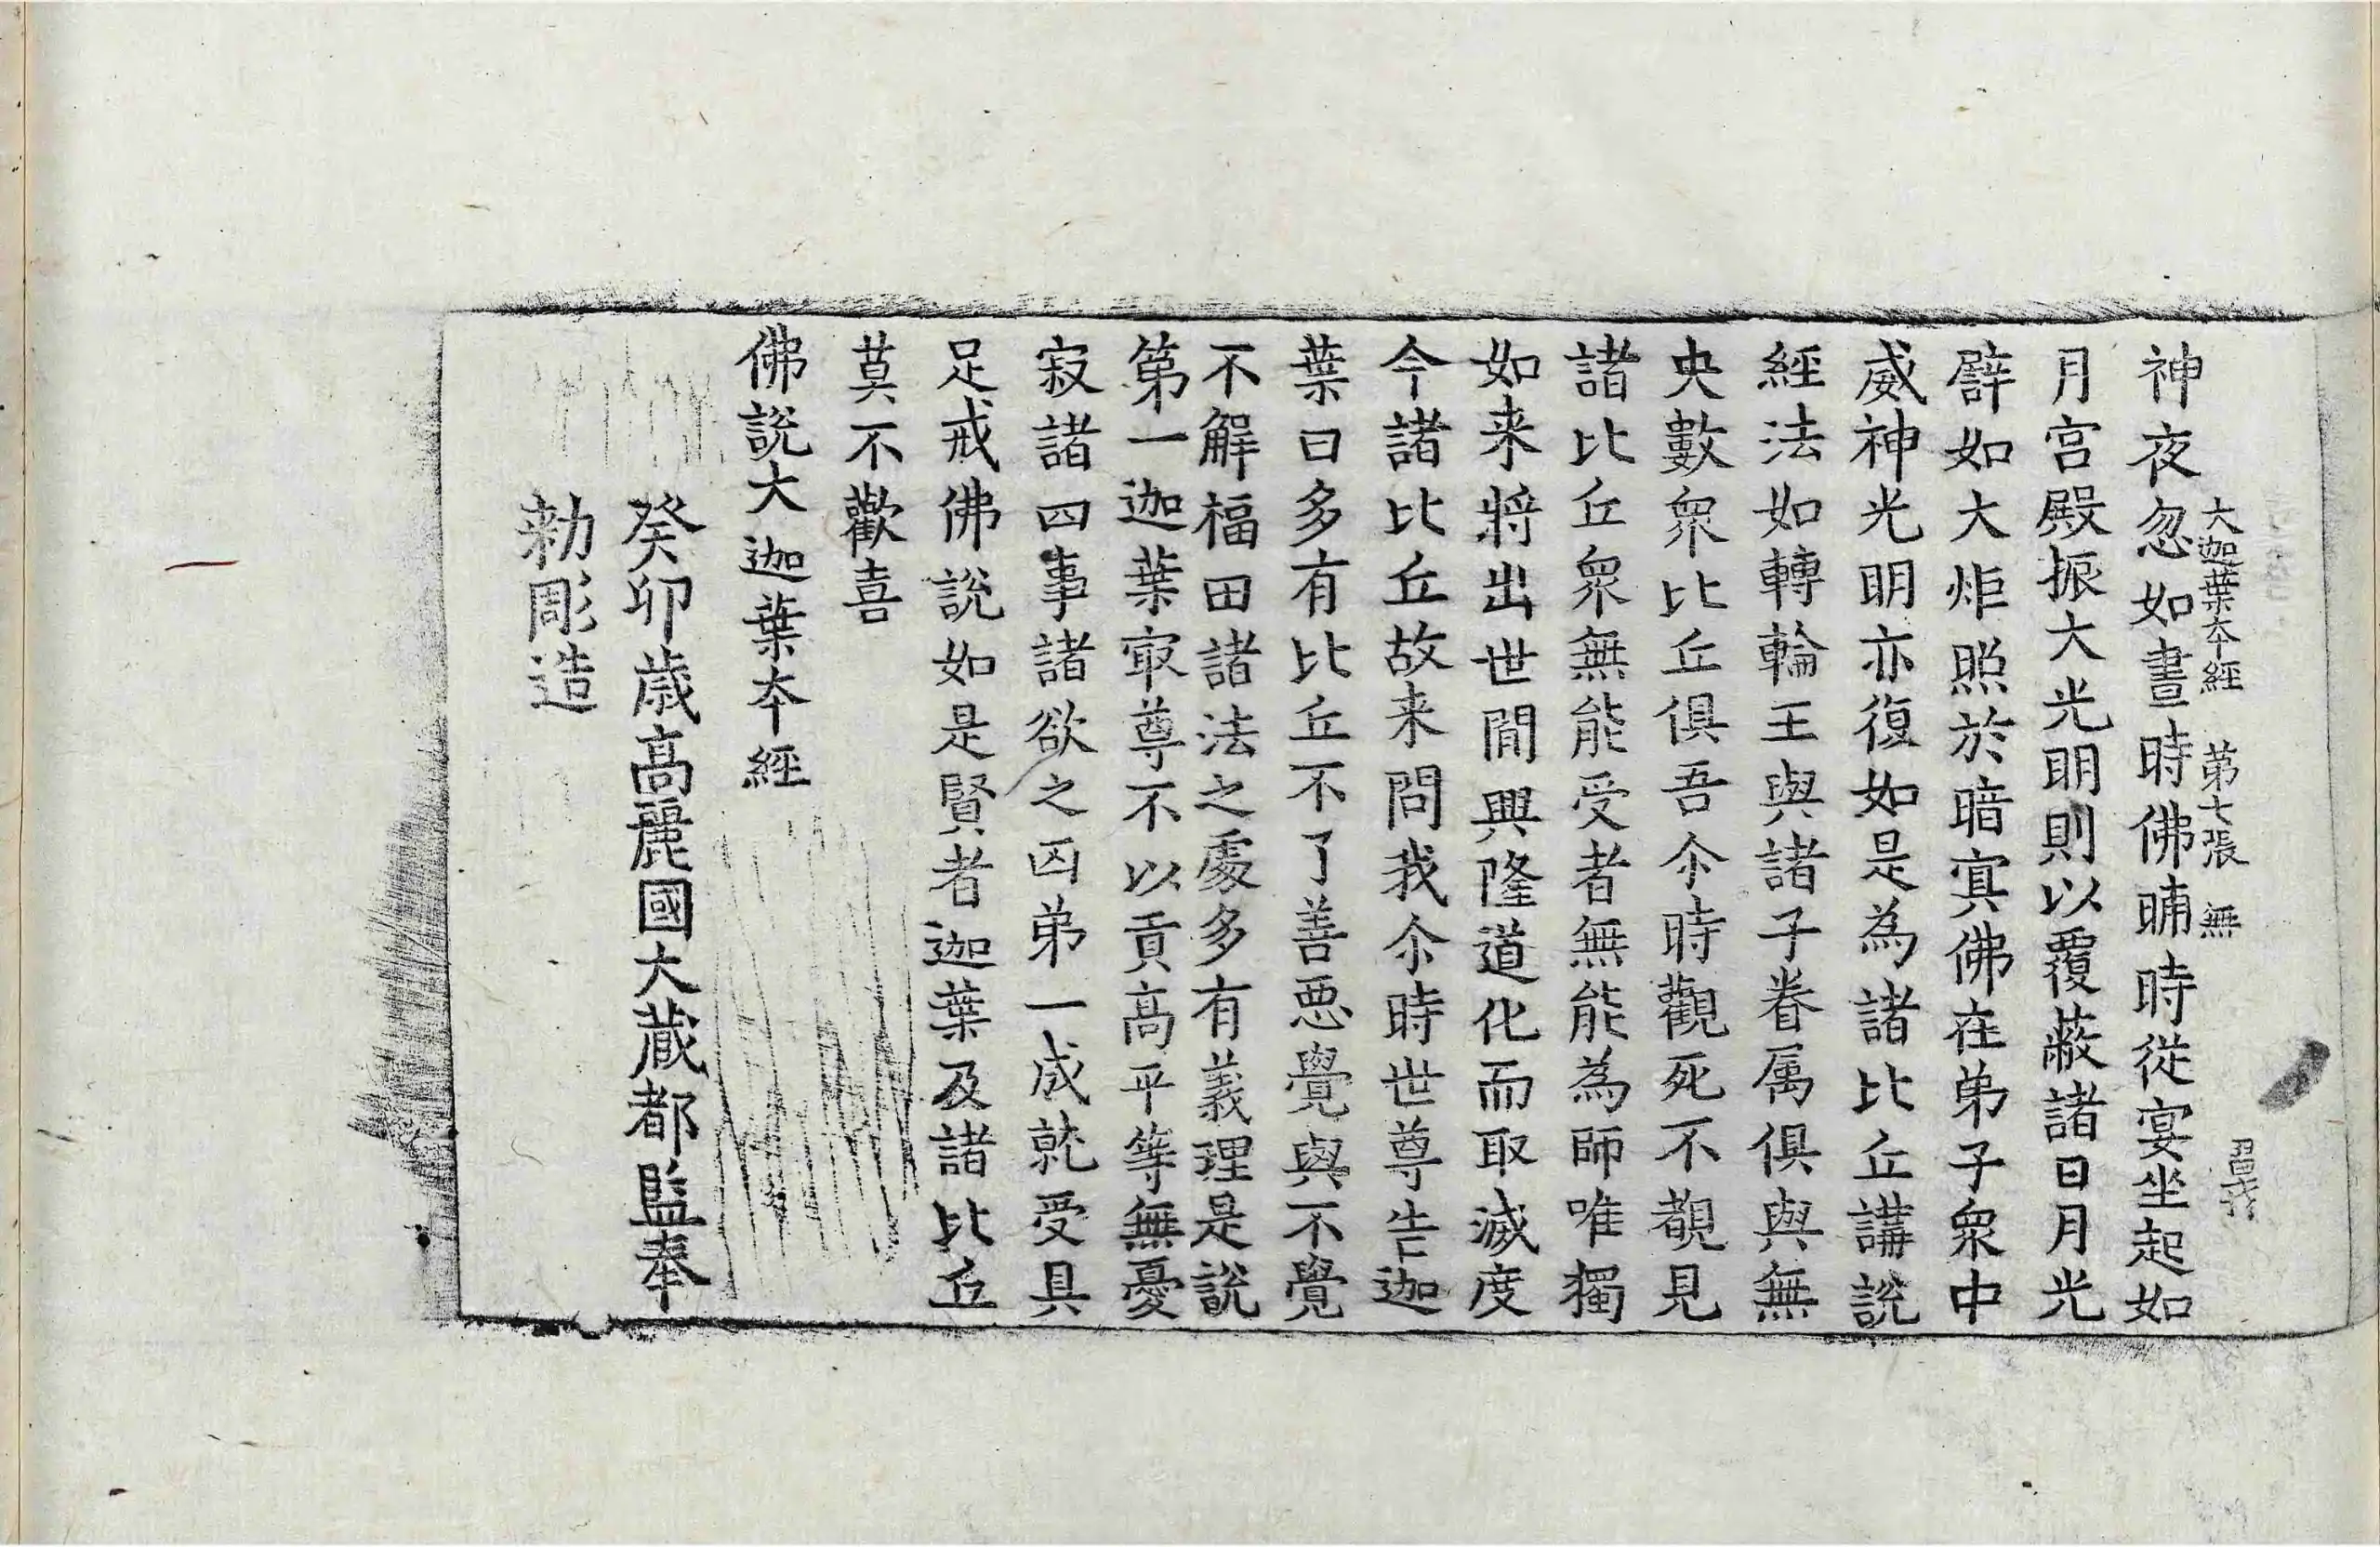 大迦葉夲經　第七張　無
神夜忽如晝時佛晡時從宴坐起如
月宮殿振大光明則以覆蔽諸日月光
辟如大炬照於暗寘佛在弟子衆中
威神光明亦復如是為諸比丘講說
經法如轉輪王與諸子眷屬俱與無
央數衆比丘俱吾尒時觀死不覩見
諸比丘衆無能受者無能為師唯獨
如来將出世間興隆道化而取滅度
今諸比丘故来問我尒時世尊告迦
葉曰多有比丘不了善惡覺與不覺
不解福田諸法之處多有義理是說
第一迦葉㝡尊不以貢高平等無憂
寂諸四事諸欲之凶弟一成就受具
足戒佛說如是賢者迦葉及諸比丘
莫不歡喜
佛說大迦葉夲經
癸卯歲高麗國大藏都監奉
勑彫造